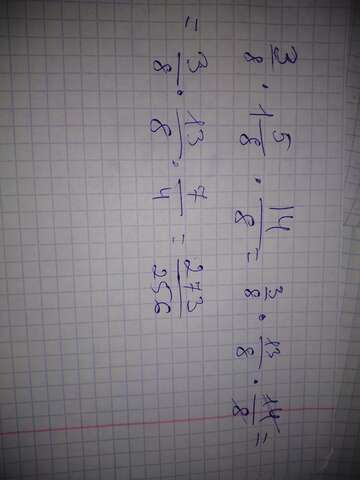 3/8 · 1 5/8 · 14/8 = 3/8 · 13/8 · 14/8 =
= 3/8 · 13/8 · 7/4 = 273/256